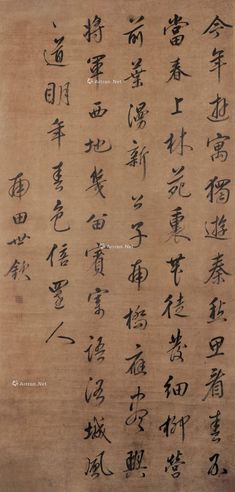 今年遊寓獨遊秦愁思看春不
當春上林苑裏花徒發細柳營
前葉漫新公子南橋應盡興
將軍西地幾留賓寄語洛城風
日道明年春色倍還人
甫田世欽
Artron.Net
Artron.Net
Artron.Net
Artron.Net